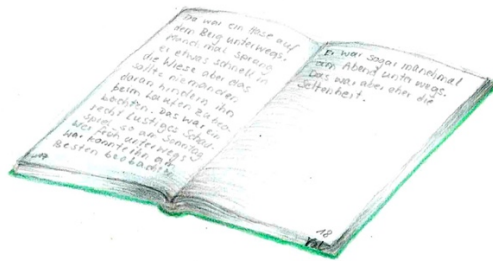 Da war ein Hase auf
dem Berg unterwegs.
Manchmal sprang
er etwas schnell in
die Wiese aber das
sollte niemanden
daran hindern ihn
beim Laufen zu beo-
bachten. Das war ein
recht lustiges Schau-
spiel. So am Sonntag
wer früh unterwegs
war konnte ihn am
Besten beobachten
17
Er war sogar manchmal
am Abend unterwegs.
Das war aber eher die
Seltenheit.
18